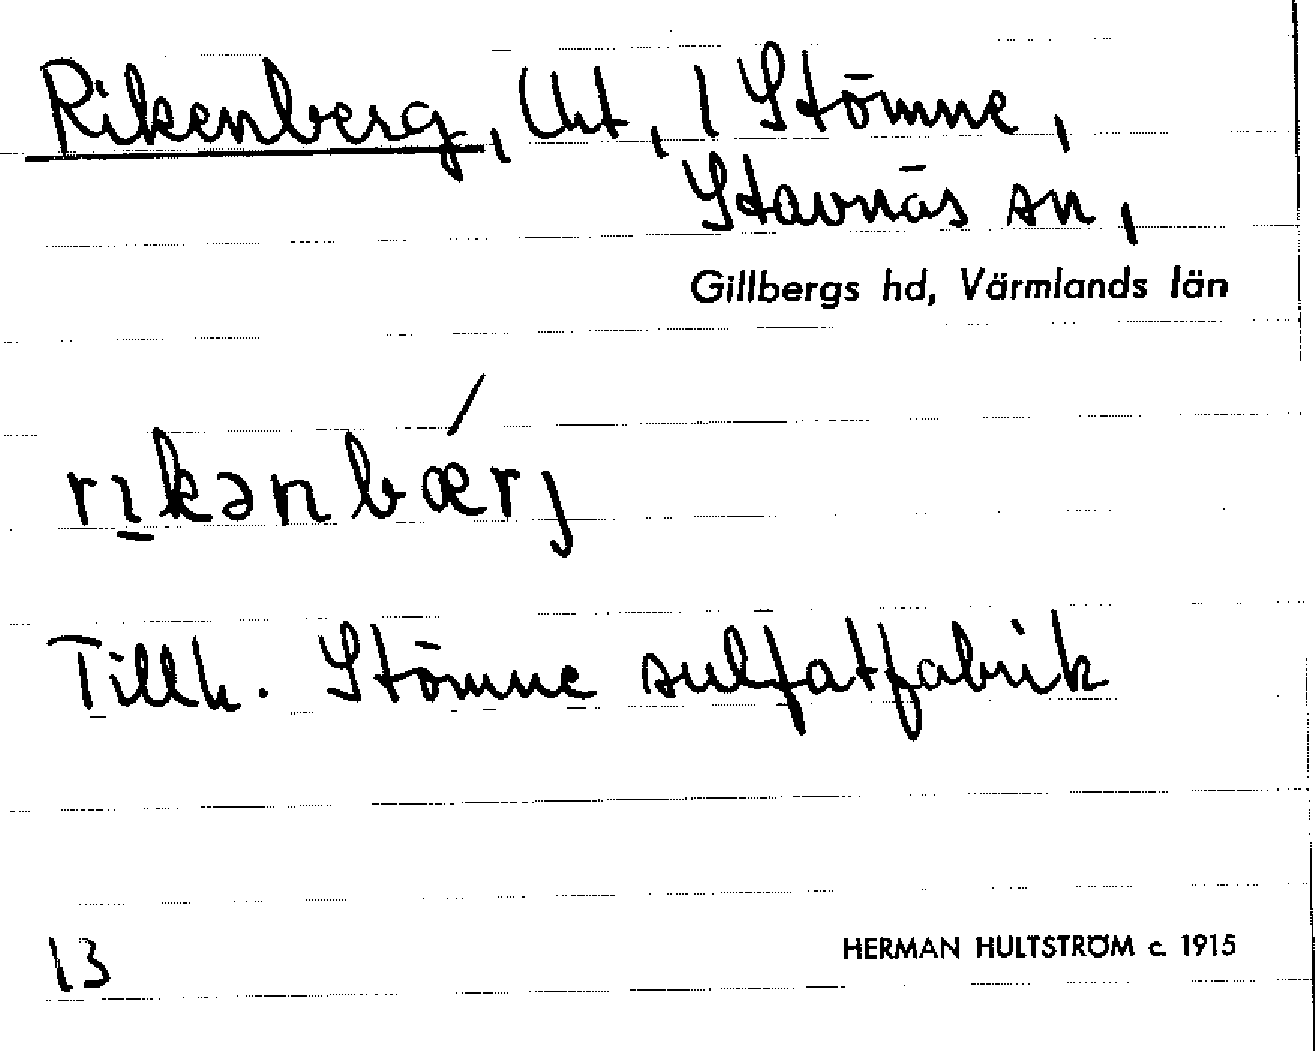 Rikenberg, lht, 1 Stömne,
Stavnäs sn,
Gillbergs hd, Värmlands län
rıkənbǽrj
Tillh. Stömne sulfatfabrik
13
HERMAN HULTSTRÖM c. 1915